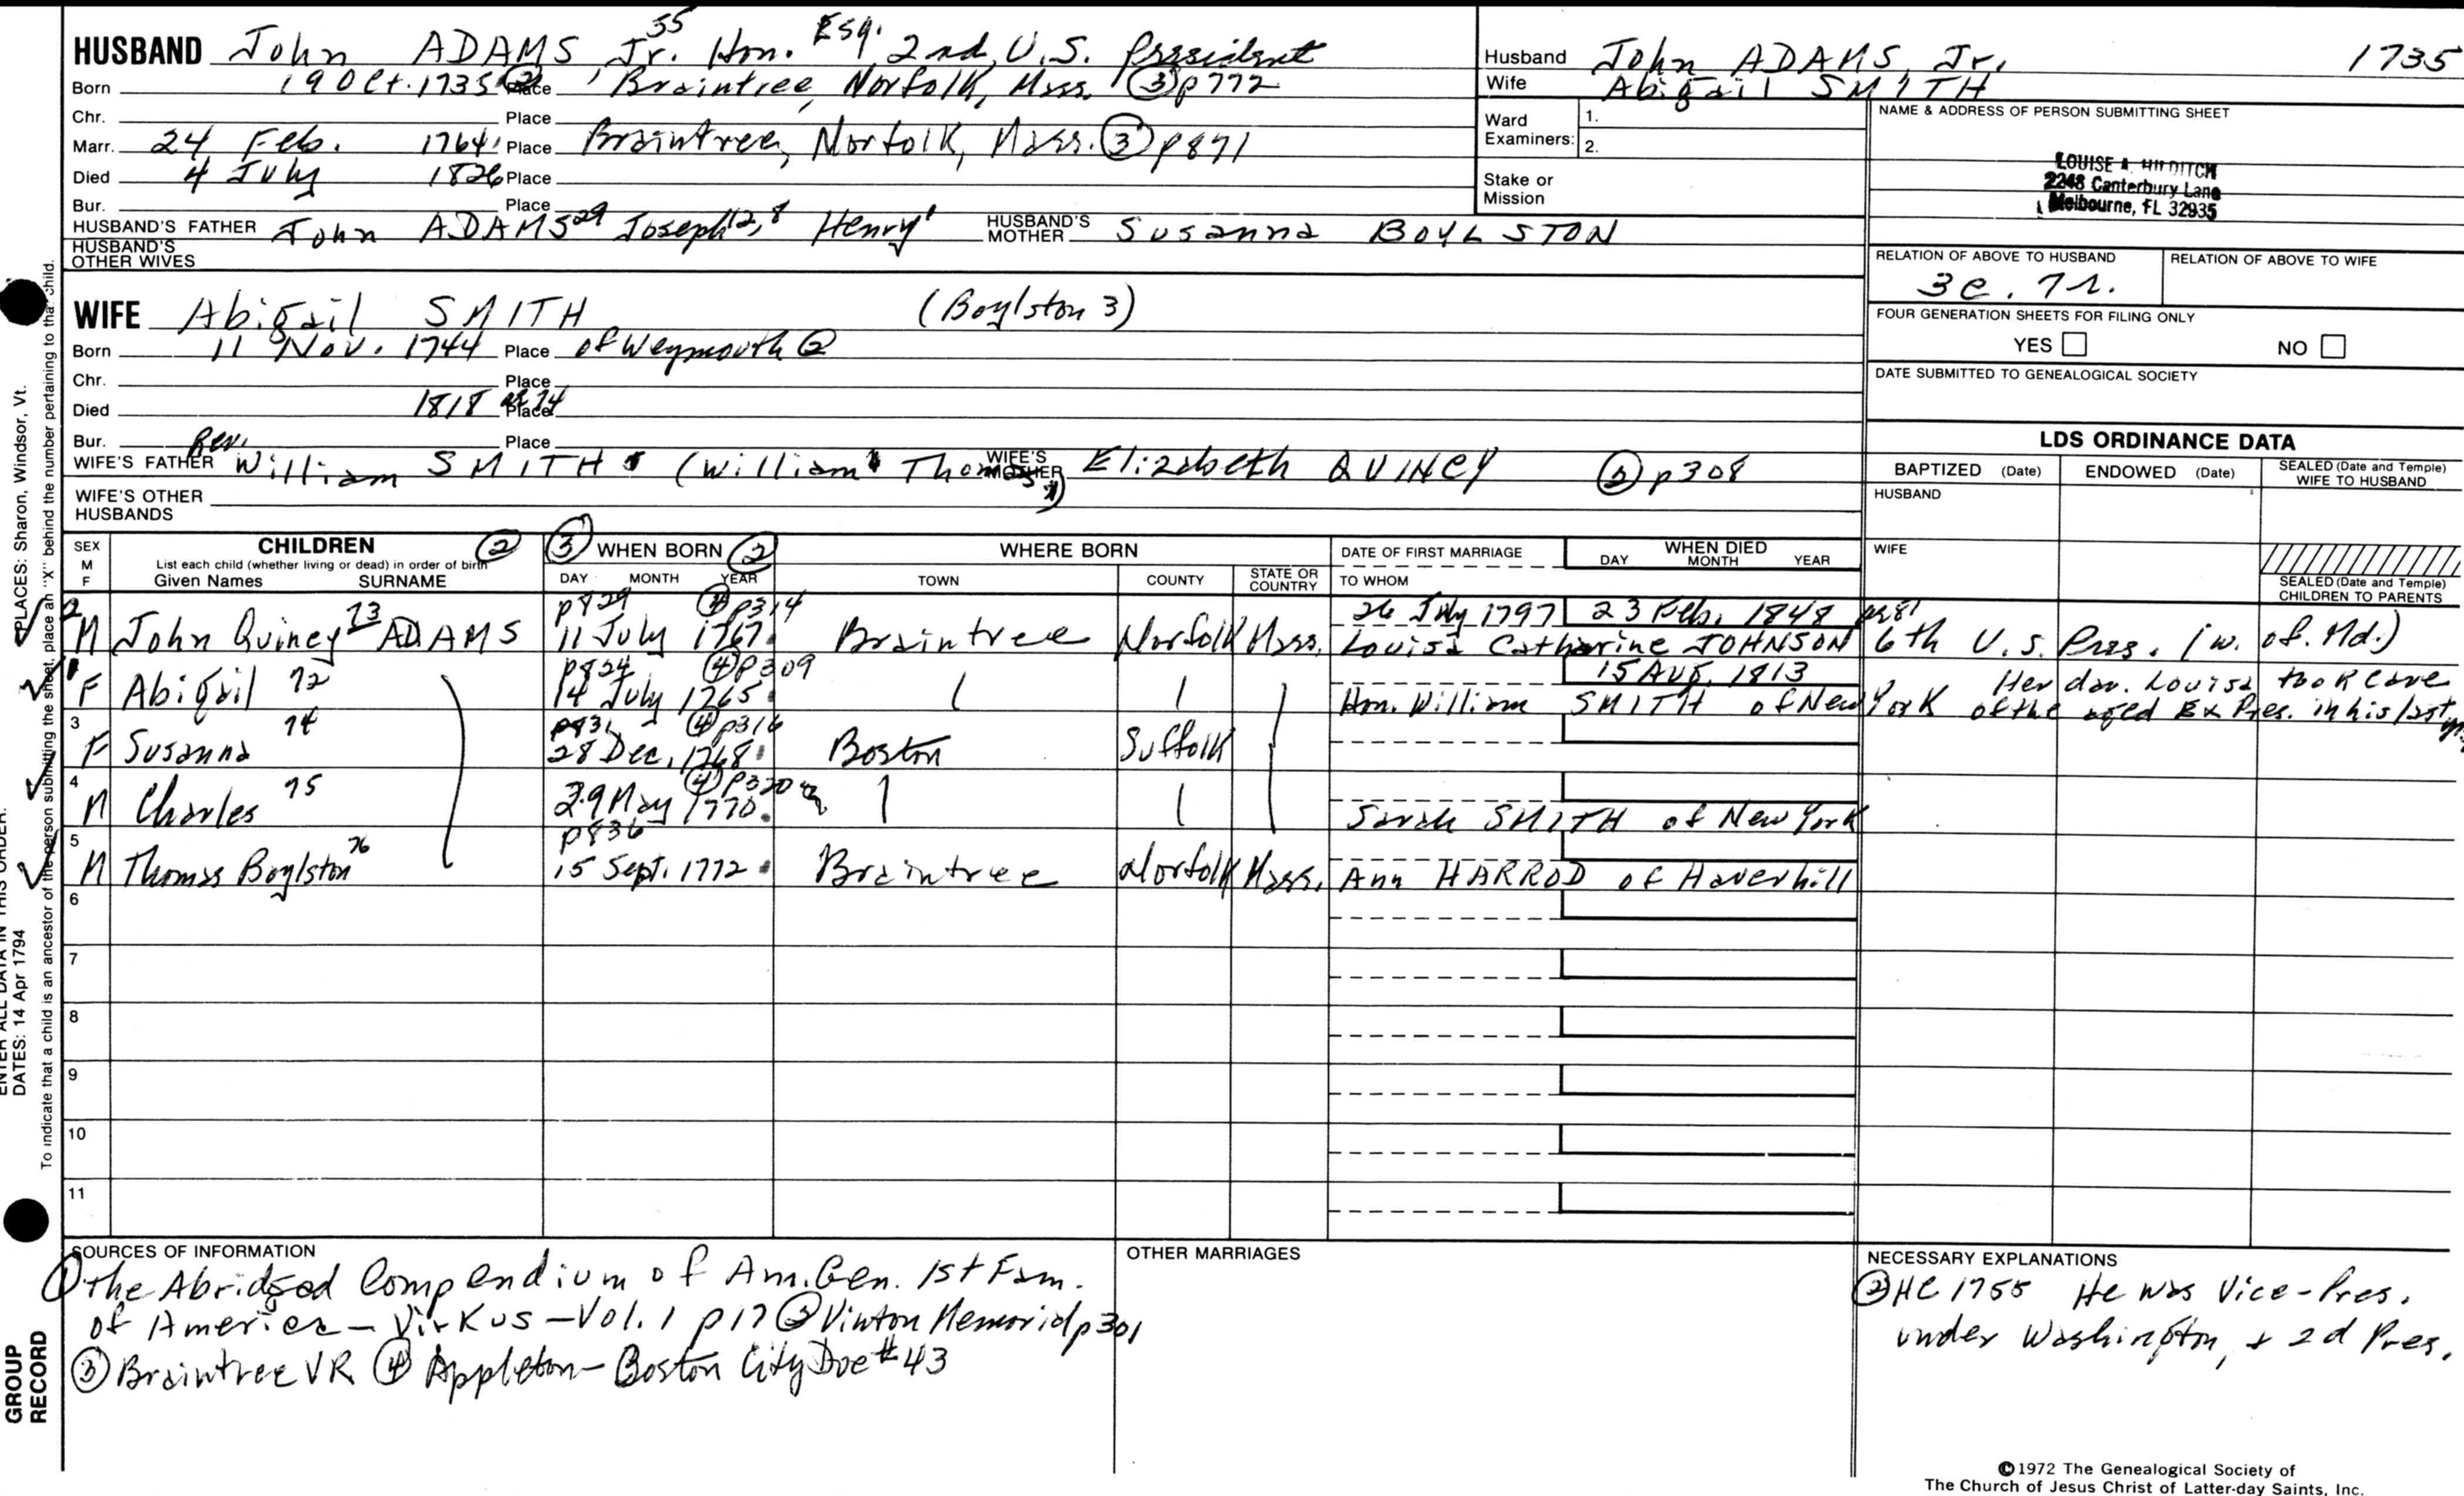 HUSBAND John ADAMS 35 Jr. Hon. Esq. 2nd U.S. President
Born 19 Oct. 1735 ② Place Braintree, Norfolk, Mass. ③ p772
Chr. Place
Marr. 24 Feb. 1764 Place Braintree, Norfolk, Mass. ③ p871
Died 4 July 1826 Place
Bur. Place
HUSBAND'S FATHER John ADAMS 29 Joseph 12, 8 Henry 1 HUSBAND'S MOTHER Susanna BOYLSTON
HUSBAND'S OTHER WIVES
Husband John ADAMS, Jr. 1735
Wife Abigail SMITH
Ward Examiners: 1.
2.
Stake or Mission
NAME & ADDRESS OF PERSON SUBMITTING SHEET
LOUISE A. HILDITCH
2248 Canterbury Lane
Melbourne, FL 32935
RELATION OF ABOVE TO HUSBAND
3c. 7r.
RELATION OF ABOVE TO WIFE
FOUR GENERATION SHEETS FOR FILING ONLY
YES NO
DATE SUBMITTED TO GENEALOGICAL SOCIETY
WIFE Abigail SMITH (Boylston 3)
Born 11 Nov. 1744 Place of Weymouth ②
Chr. Place
Died 1818 Place
Bur. Place
WIFE'S FATHER Rev. William SMITH (William Thomas) WIFE'S MOTHER Elizabeth QUINCY p308
WIFE'S OTHER HUSBANDS
LDS ORDINANCE DATA
BAPTIZED (Date) ENDOWED (Date) SEALED (Date and Temple) WIFE TO HUSBAND
HUSBAND
WIFE
SEALED (Date and Temple) CHILDREN TO PARENTS
SEX M F
CHILDREN ②
List each child (whether living or dead) in order of birth
Given Names SURNAME
③ WHEN BORN ②
DAY MONTH YEAR
WHERE BORN
TOWN COUNTY STATE OR COUNTRY
DATE OF FIRST MARRIAGE
TO WHOM
WHEN DIED
DAY MONTH YEAR
2 p829 ④ p314 26 July 1797 23 Feb. 1848
M John Quincy 73 ADAMS 11 July 1767 Braintree Norfolk Mass. Louisa Catharine JOHNSON 6th U.S. Pres. (w. of Md.)
1 p824 ④ p309 15 Aug. 1813
F Abigail 72 14 July 1765 Hon. William SMITH of New York Her dau. Louisa took care of the aged Ex Pres. in his last yrs
3 p831 ④ p316
F Susanna 74 28 Dec. 1768 Boston Suffolk
4 ④ p320
M Charles 75 29 May 1770 Sarah SMITH of New York
5 p836
M Thomas Boylston 76 15 Sept. 1772 Braintree Norfolk Mass. Ann HARROD of Haverhill
6
7
8
9
10
11
SOURCES OF INFORMATION
① The Abridged Compendium of Am. Gen. 1st Fam.
of America - Virkus - Vol. 1 p17 ② Vinton Memorial p301
③ Braintree VR ④ Appleton - Boston City Doc #43
OTHER MARRIAGES
NECESSARY EXPLANATIONS
② HC 1755 He was Vice-Pres.
under Washington, + 2d Pres.
©1972 The Genealogical Society of
The Church of Jesus Christ of Latter-day Saints, Inc.
PLACES: Sharon, Windsor, Vt.
To indicate that a child is an ancestor of the person submitting the sheet, place an "X" behind the number pertaining to that child.
ENTER ALL DATA IN THIS ORDER:
DATES: 14 Apr 1794
GROUP
RECORD